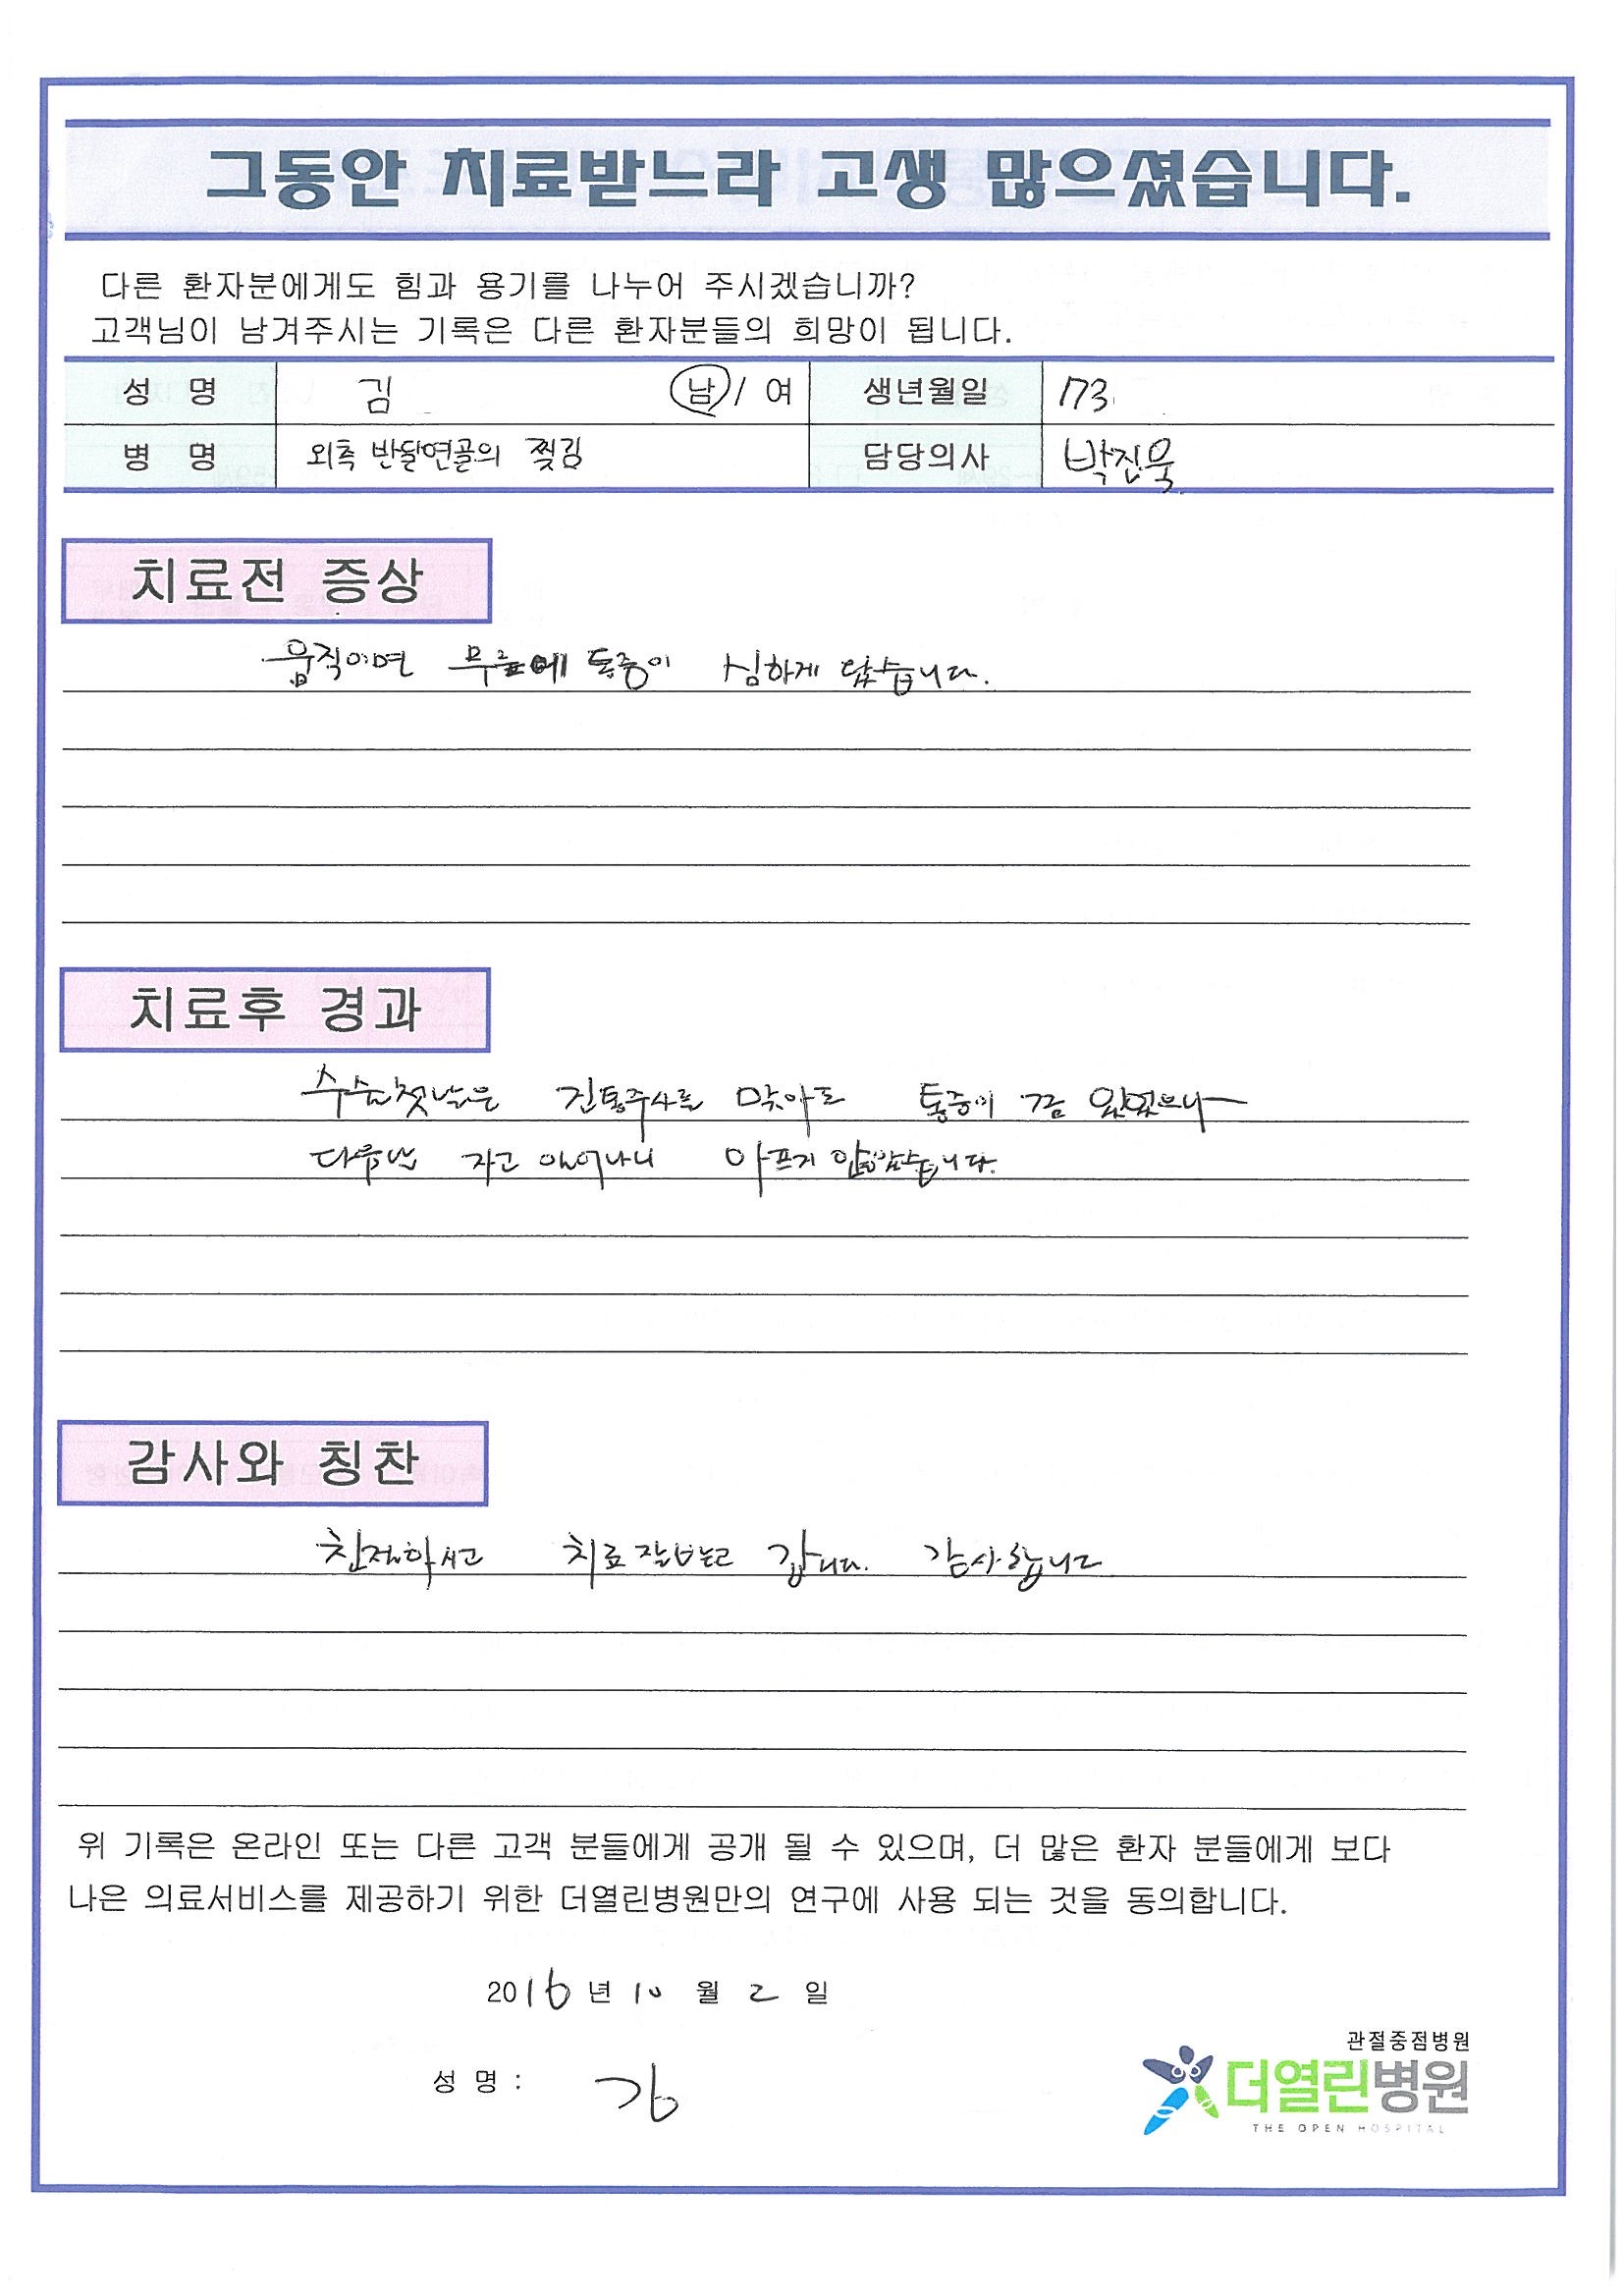 그동안 치료받느라 고생 많으셨습니다.
다른 환자분에게도 힘과 용기를 나누어 주시겠습니까?
고객님이 남겨주시는 기록은 다른 환자분들의 희망이 됩니다.
성 명 김 남 / 여 생년월일 73.
병 명 외측 반달연골의 찢김 담당의사 박진욱
치료전 증상
움직이면 무릎에 통증이 심하게 왔습니다.
치료후 경과
수술첫날은 진통주사를 맞아도 통증이 좀 있었으나
다음날 자고 일어나니 아프지 않았습니다.
감사와 칭찬
친절하시고 치료 잘받고 갑니다. 감사합니다
위 기록은 온라인 또는 다른 고객 분들에게 공개 될 수 있으며, 더 많은 환자 분들에게 보다
나은 의료서비스를 제공하기 위한 더열린병원만의 연구에 사용 되는 것을 동의합니다.
2016 년 10 월 2 일
관절중점병원
성 명 : 김
더열린병원
THE OPEN HOSPITAL